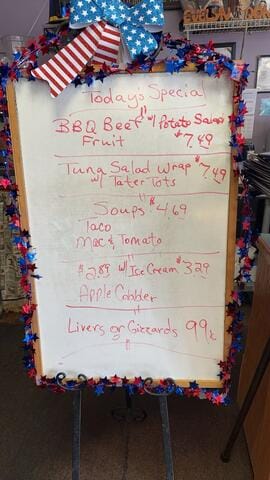 Today's Special
BBQ Beef w/ Potato Salad
Fruit $7.49
Tuna Salad Wrap $7.49
w/ Tater Tots
Soups $4.69
Taco
Mac & Tomato
$2.89 w/ Ice Cream $3.29
Apple Cobbler
Livers or Gizzards 99¢